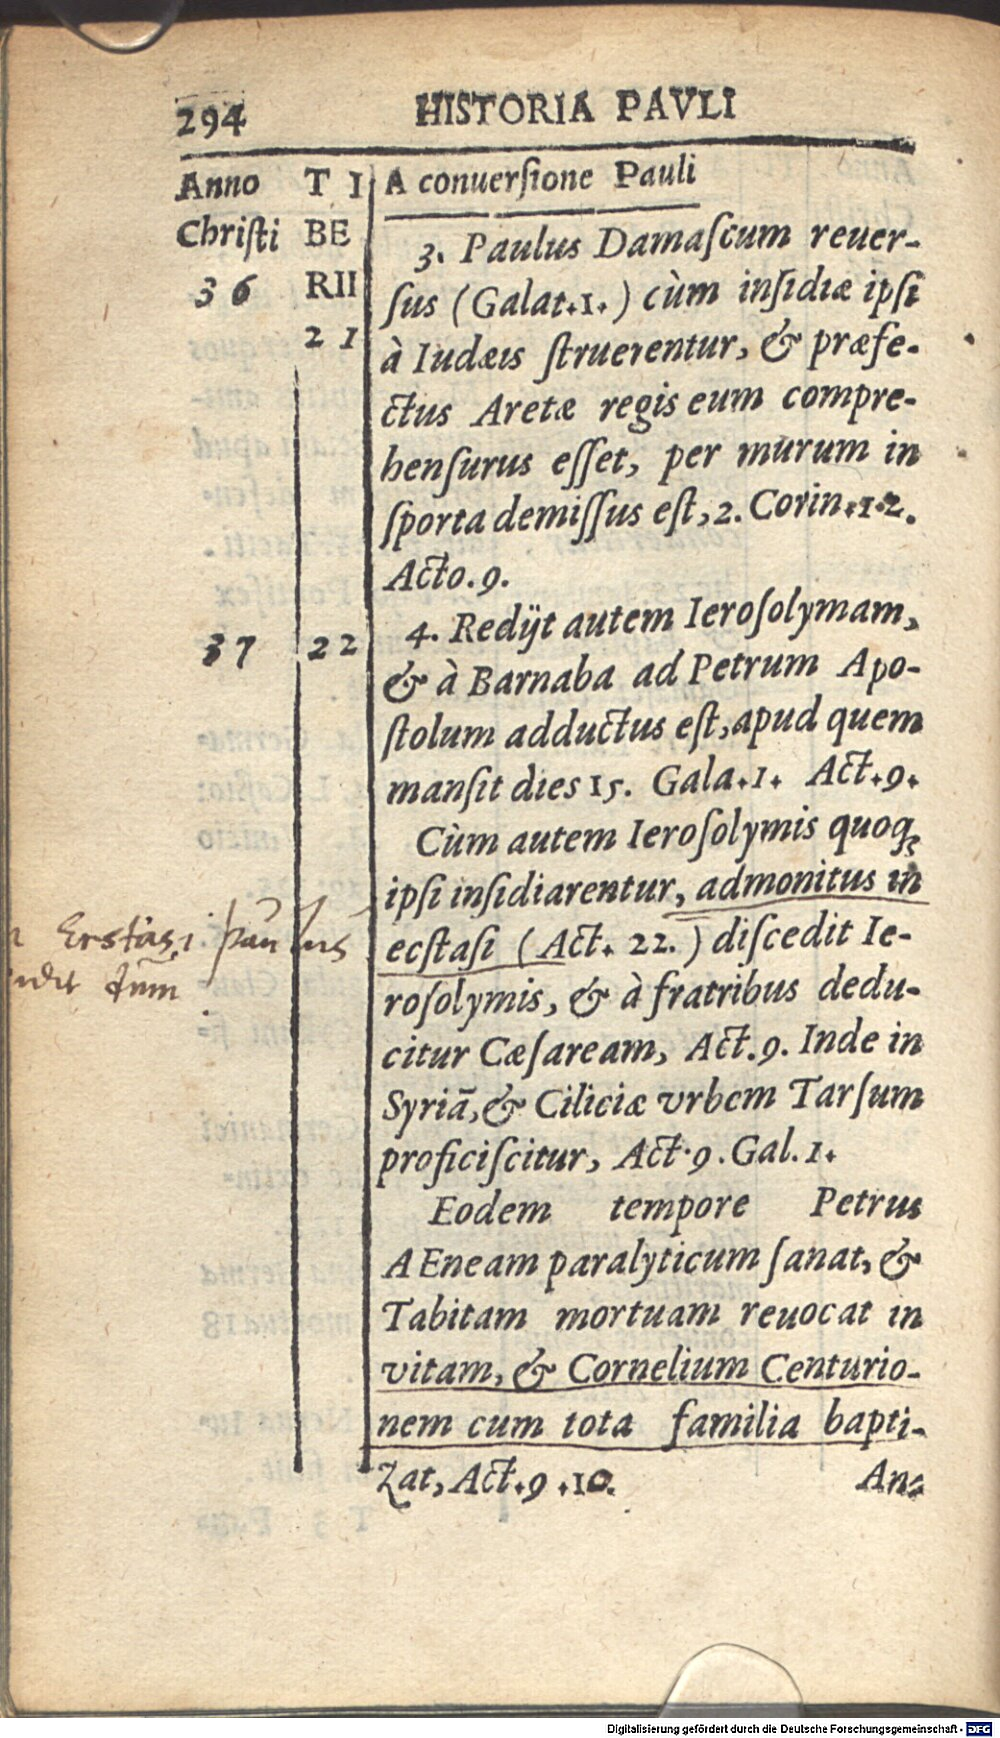 294 HISTORIA PAVLI
Anno T I A conuerſione Pauli
Chriſti BE
3 6 RII
2 1
3. Paulus Damaſcum reuer-
ſus (Galat.1.) cùm inſidiæ ipſi
à Iudæis ſtruerentur, & præfe-
ctus Aretæ regis eum compre-
henſurus eſſet, per murum in
ſporta demiſſus eſt, 2. Corin.12.
Acto. 9.
37 22 4. Redijt autem Ieroſolymam,
& à Barnaba ad Petrum Apo-
ſtolum adductus eſt, apud quem
manſit dies 15. Gala.1. Act.9.
Cùm autem Ieroſolymis quoq;
ipſi inſidiarentur, admonitus in
ecſtaſi (Act. 22.) diſcedit Ie-
roſolymis, & à fratribus dedu-
citur Cæſaream, Act. 9. Inde in
Syriā, & Ciliciæ vrbem Tarſum
proficiſcitur, Act. 9. Gal. 1.
Eodem tempore Petrus
AEneam paralyticum ſanat, &
Tabitam mortuam reuocat in
vitam, & Cornelium Centurio-
nem cum tota familia bapti-
zat, Act. 9. 10. An-
Digitalisierung gefördert durch die Deutsche Forschungsgemeinschaft - DFG